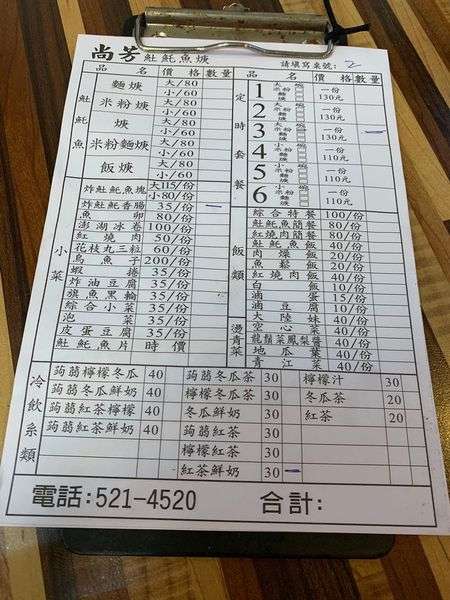 尚芳 𩵚魠魚焿 請填寫桌號: 2
品 名 價 格 數量 品 名 價 格 數量
𩵚魠魚
麵焿 大/80 小/60
米粉焿 大/80 小/60
焿 大/80 小/60
米粉麵焿 大/80 小/60
飯焿 大/80 小/60
定時套餐
1 大 米粉 麵 焿 一份 130元
2 大 米粉 麵 焿 一份 130元
3 大 米粉 麵 焿 一份 130元 一
4 小 米粉 麵 焿 一份 110元
5 小 米粉 麵 焿 一份 110元
6 小 米粉 麵 焿 一份 110元
小菜
炸𩵚魠魚塊 大115/份 小80/份
炸𩵚魠香腸 35/份 一
魚卵 80/份
澎湖冰卷 100/份
紅燒肉 50/份
花枝丸三粒 60/份
烏魚子 200/份
蝦捲 35/份
炸油豆腐 35/份
旗魚黑輪 35/份
綜合小菜 35/份
泡菜 35/份
皮蛋豆腐 35/份
𩵚魠魚片 時價
飯類
綜合特餐 100/份
𩵚魠魚簡餐 80/份
紅燒肉簡餐 80/份
𩵚魠魚飯 40/份
肉燥飯 20/份
魚鬆飯 20/份
紅燒肉飯 40/份
白飯 10/份
滷蛋 15/份
滷豆腐 10/份
燙青菜
大陸妹 40/份
空心菜 40/份
龍鬚菜鳳梨醬 40/份
地瓜葉 40/份
青江菜 40/份
冷飲系類
蒟蒻檸檬冬瓜 40 蒟蒻冬瓜茶 30 檸檬汁 30
蒟蒻冬瓜鮮奶 40 檸檬冬瓜茶 30 冬瓜茶 20
蒟蒻紅茶檸檬 40 冬瓜鮮奶 30 紅茶 20
蒟蒻紅茶鮮奶 40 蒟蒻紅茶 30
檸檬紅茶 30
紅茶鮮奶 30 一
電話:521-4520 合計: